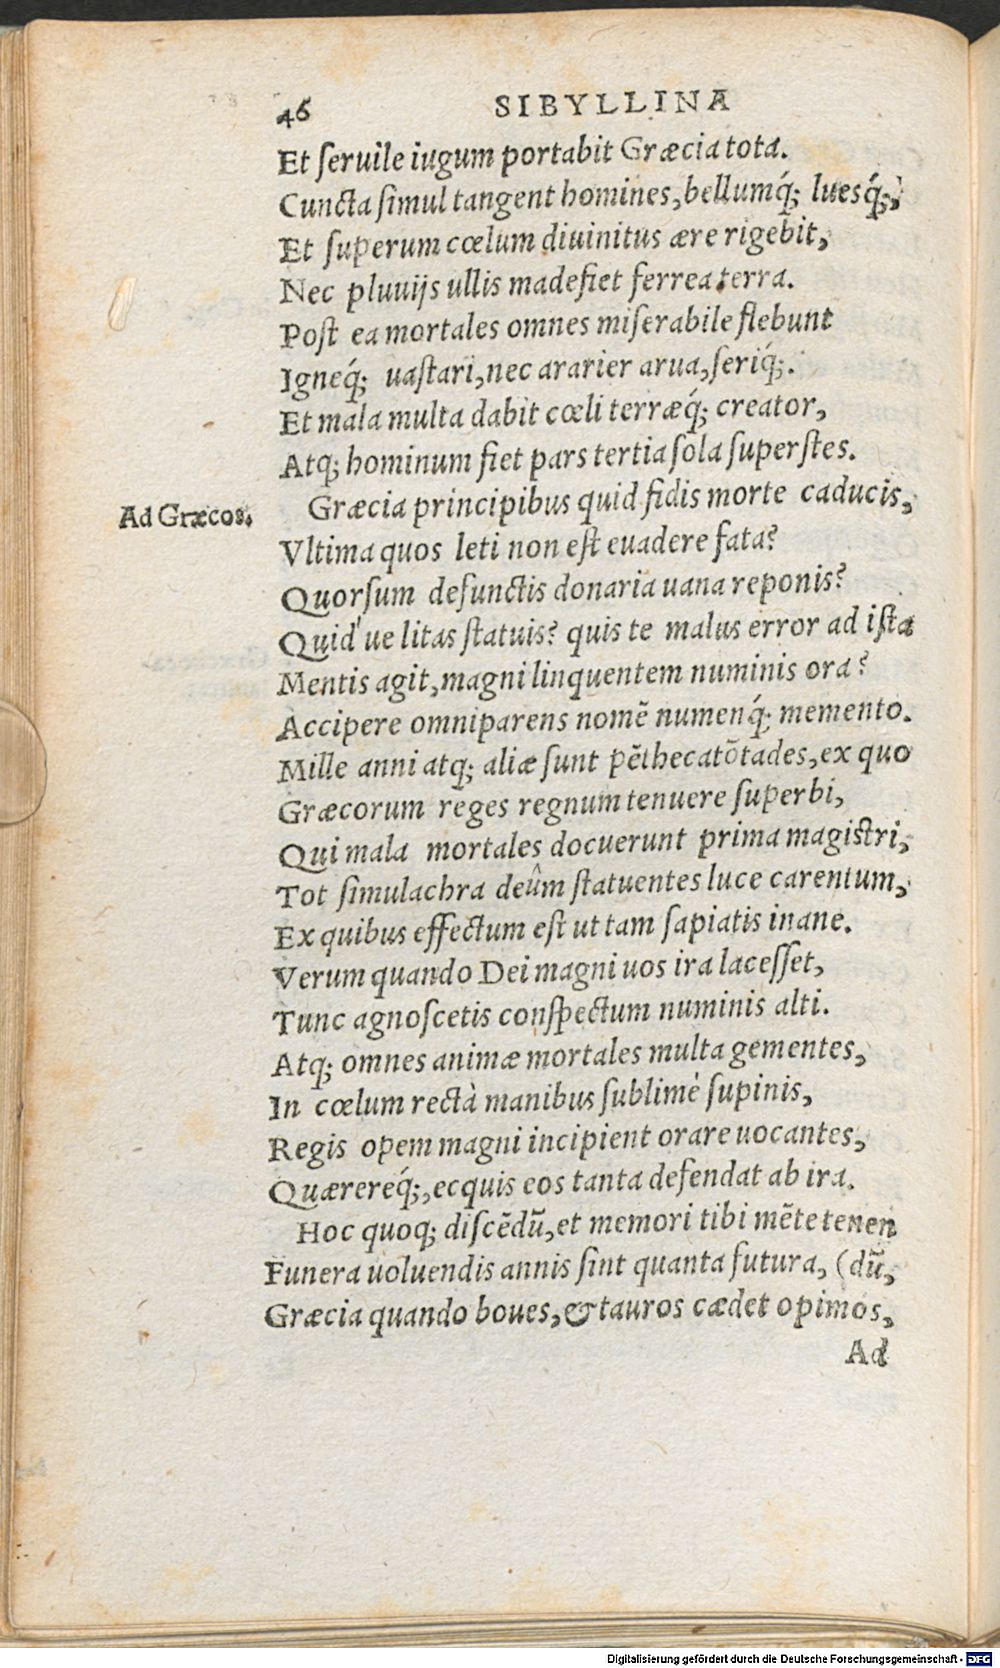 46 SIBYLLINA
Et ſeruile iugum portabit Græcia tota.
Cuncta ſimul tangent homines, bellumq́; luesq́;,
Et ſuperum cœlum diuinitus ære rigebit,
Nec pluuijs ullis madefiet ferrea terra.
Poſt ea mortales omnes miſerabile flebunt
Igneq́; uaſtari, nec ararier arua, ſeriq́;.
Et mala multa dabit cœli terræq́; creator,
Atq; hominum fiet pars tertia ſola ſuperſtes.
Ad Græcos.
Græcia principibus quid fidis morte caducis,
Vltima quos leti non eſt euadere fata?
Quorſum defunctis donaria uana reponis?
Quid'ue litas ſtatuis? quis te malus error ad iſta
Mentis agit, magni linquentem numinis ora?
Accipere omniparens nomē numenq́; memento.
Mille anni atq; aliæ ſunt pēthecatōtades, ex quo
Græcorum reges regnum tenuere ſuperbi,
Qui mala mortales docuerunt prima magiſtri,
Tot ſimulachra deûm ſtatuentes luce carentum,
Ex quibus effectum eſt ut tam ſapiatis inane.
Verum quando Dei magni uos ira laceſſet,
Tunc agnoſcetis conſpectum numinis alti.
Atq; omnes animæ mortales multa gementes,
In cœlum rectà manibus ſublimè ſupinis,
Regis opem magni incipient orare uocantes,
Quærereq́;, ecquis eos tanta defendat ab ira.
Hoc quoq; diſcēdū, et memori tibi mēte tenen
Funera uoluendis annis ſint quanta futura, (dū,
Græcia quando boues, & tauros cædet opimos,
Ad
Digitalisierung gefördert durch die Deutsche Forschungsgemeinschaft - DFG